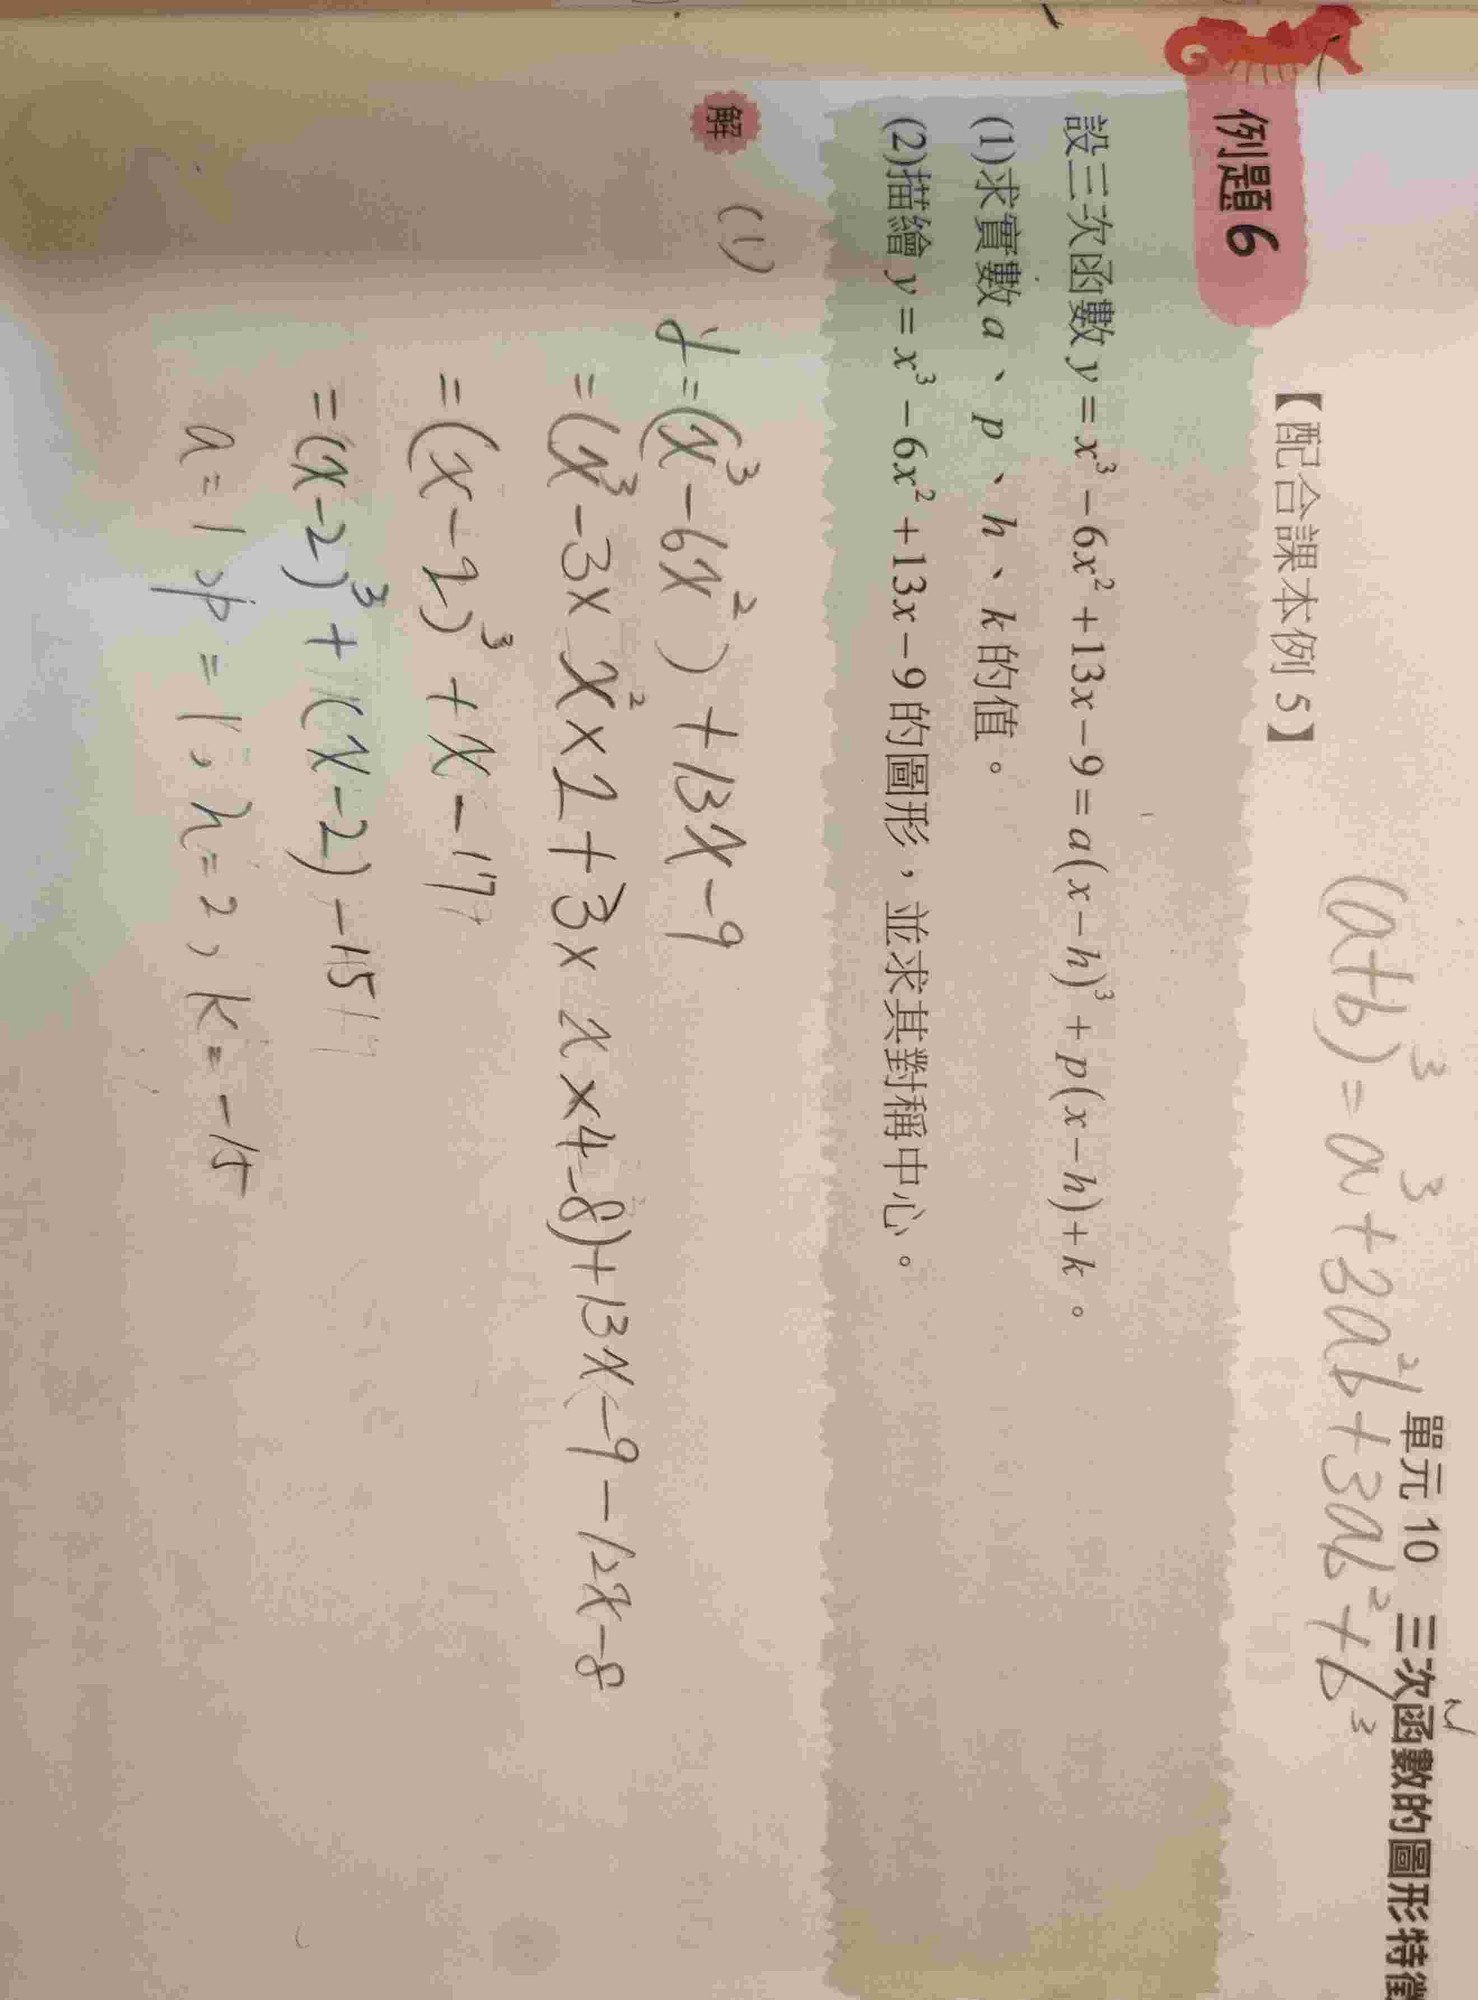 單元 10 三次函數的圖形特徵
(a+b)³=a³+3a²b+3ab²+b³
例題 6
【配合課本例 5】
設三次函數 y = x³ − 6x² + 13x − 9 = a(x−h)³ + p(x−h) + k。
(1)求實數 a、p、h、k 的值。
(2)描繪 y = x³ − 6x² + 13x − 9 的圖形，並求其對稱中心。
解
(1)
y=(x³-6x²)+13x-9
=(x³-3×x²×2+3×x×4-8)+13x-9-12x-8
=(x-2)³+x-17
=(x-2)³+1(x-2)-15
a=1, p=1, h=2, k=-15